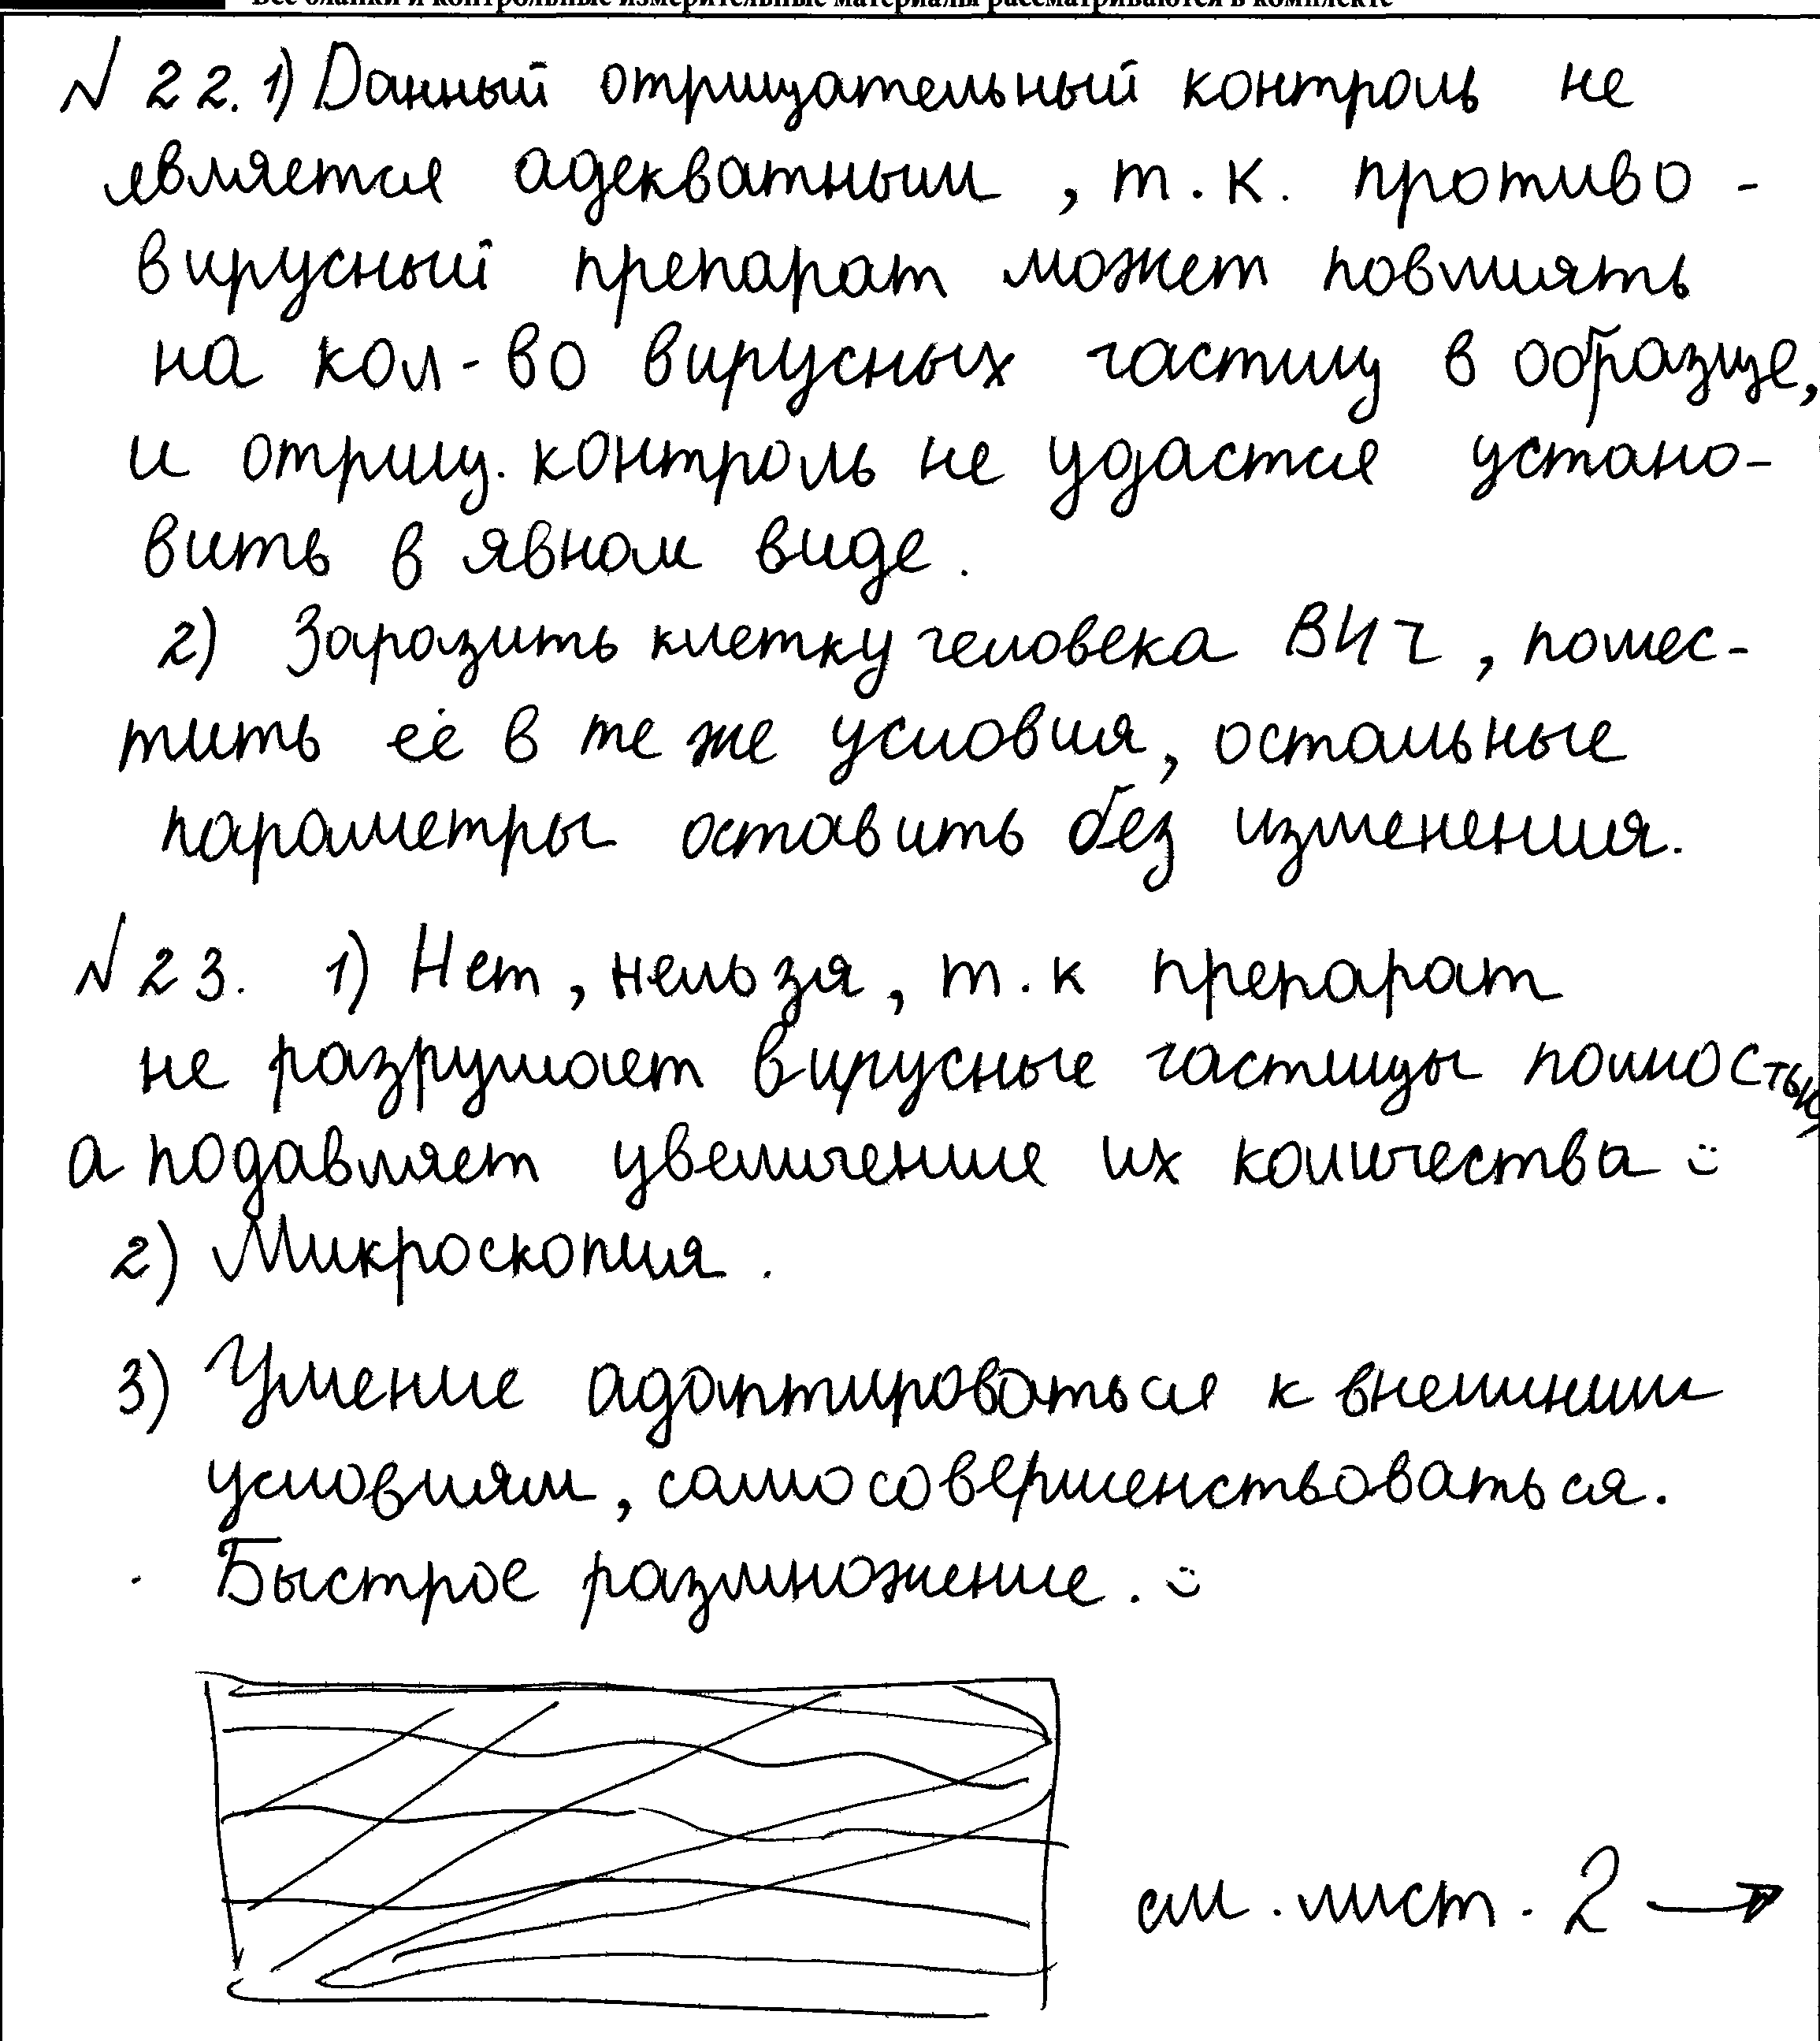 Все бланки и контрольные измерительные материалы рассматриваются в комплекте
№ 22. 1) Данный отрицательный контроль не
является адекватным, т.к. противо-
вирусный препарат может повлиять
на кол-во вирусных частиц в образце,
и отриц. контроль не удастся устано-
вить в явном виде.
2) Заразить клетку человека ВИЧ, помес-
тить её в те же условия, остальные
параметры оставить без изменения.
№ 23. 1) Нет, нельзя, т.к препарат
не разрушает вирусные частицы полностью
а подавляет увеличение их количества
2) Микроскопия.
3) Умение адаптироваться к внешним
условиям, самосовершенствоваться.
Быстрое размножение.
см. лист. 2 →